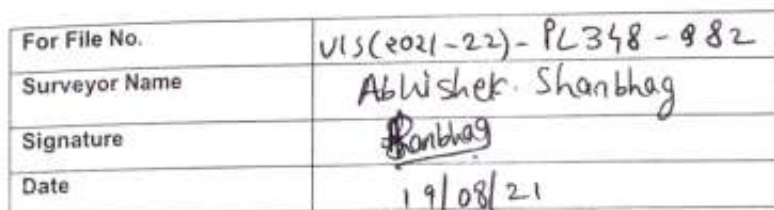 For File No. VIS(2021-22)-PL348-982
Surveyor Name Abhishek. Shanbhag
Signature Shanbhag
Date 19/08/21